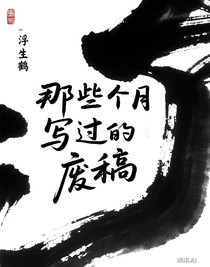 浮生鹤
那些个月
写过的
废稿